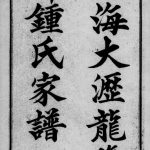 海大瀝龍
鍾氏家譜